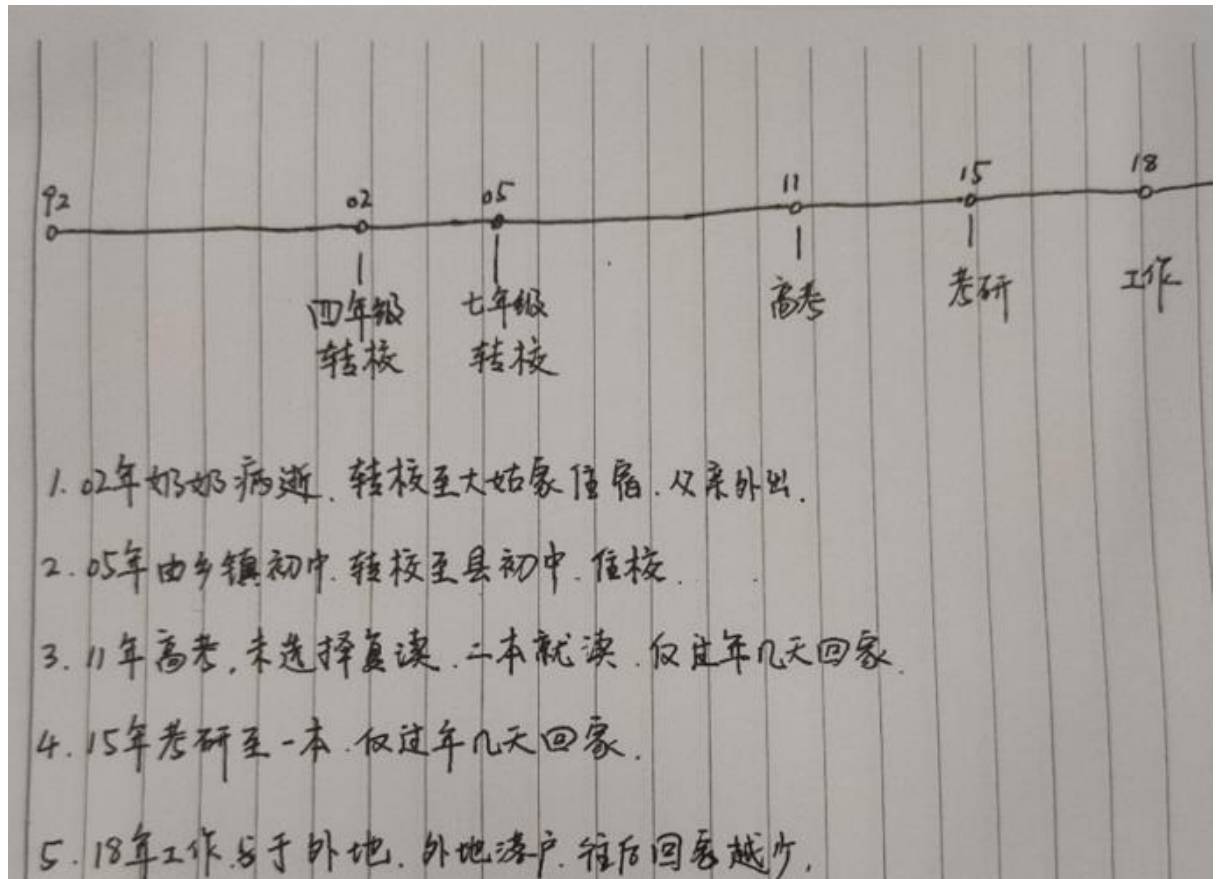 92 02 05 11 15 18
四年级 七年级 高考 考研 工作
转校 转校
1. 02年奶奶病逝. 转校至大姑家住宿. 父亲外出.
2. 05年由乡镇初中. 转校至县初中. 住校.
3. 11年高考, 未选择复读. 二本就读. 仅过年几天回家.
4. 15年考研至一本. 仅过年几天回家.
5. 18年工作 于外地. 外地落户. 往后回家越少.